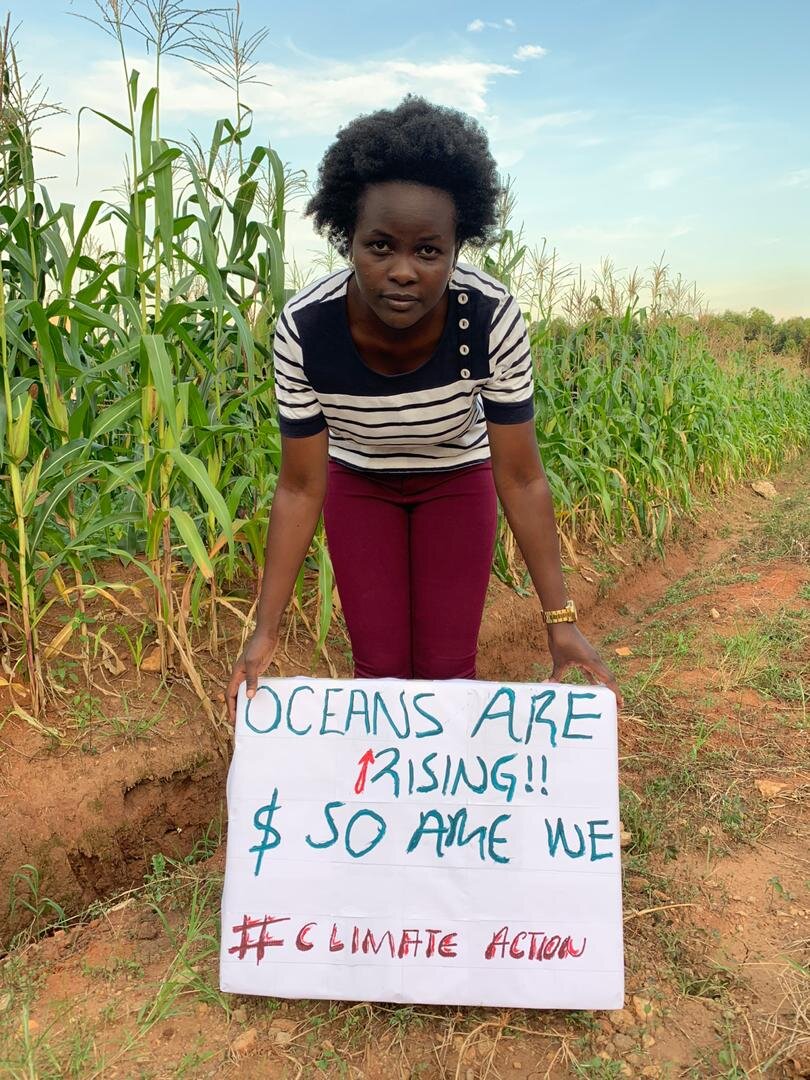 OCEANS ARE
RISING!!
$ SO ARE WE
#CLIMATE ACTION